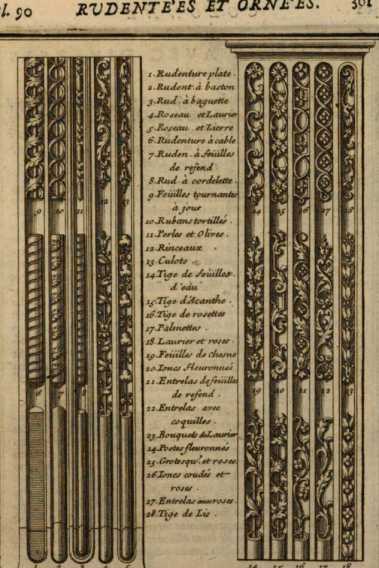 Pl. 90 RUDENTÉES ET ORNÉES. 301
1. Rudenture plate.
2. Rudent. à baston
3. Rud. à baguette
4. Roseau et Laurier
5. Roseau et Lierre
6. Rudenture à cable
7. Ruden. à feuilles
de refend
8. Rud. à cordelette
9. Feüilles tournantes
à jour
10. Rubans tortillés.
11. Perles et Olives.
12. Rinceaux
13. Culots
14. Tige de feüilles
d'eau
15. Tige d'Acanthe.
16. Tige de rosettes
17. Palmettes.
18. Laurier et roses.
19. Feüille de chesne
20. Ioncs fleuronnés
21. Entrelas de feüille
de refend.
22. Entrelas avec
coquilles.
23. Bouquets de Laurier
24. Postes fleuronnés
25. Grotesqu. et roses
26. Ioncs crudés et
roses.
27. Entrelas roses.
28. Tige de Lis.
9 10 11 12 13
24 25 26 27 28
19 20 21 22
1 2 3 4 5
14 15 16 17 18